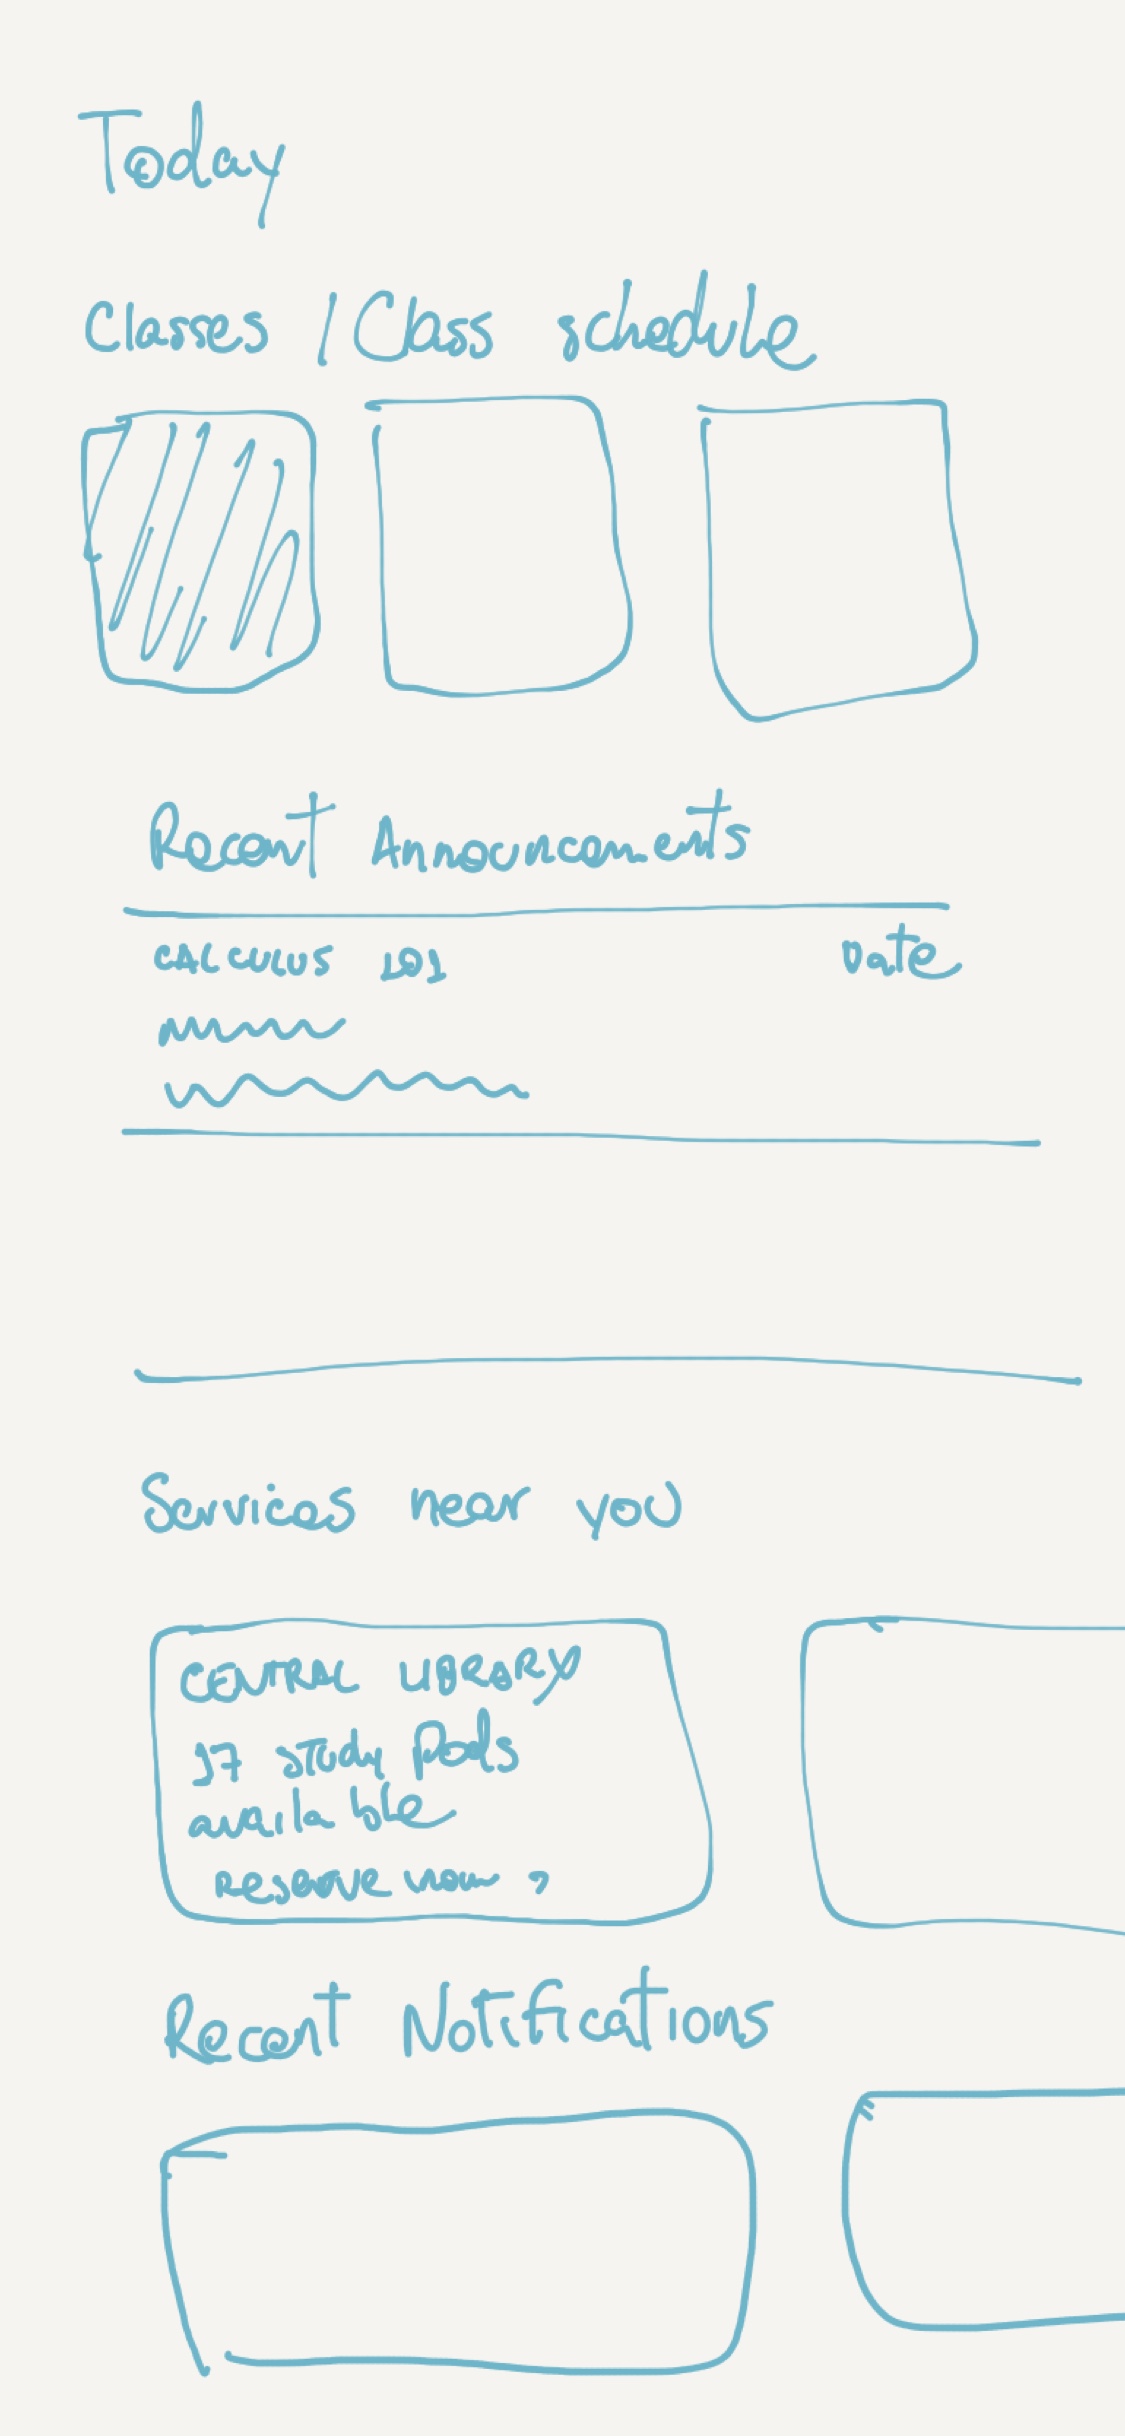 Today
Classes / Class schedule
Recent Announcements
CALCULUS 101 Date
Services near you
CENTRAL LIBRARY
17 study Pods
available
RESERVE now >
Recent Notifications